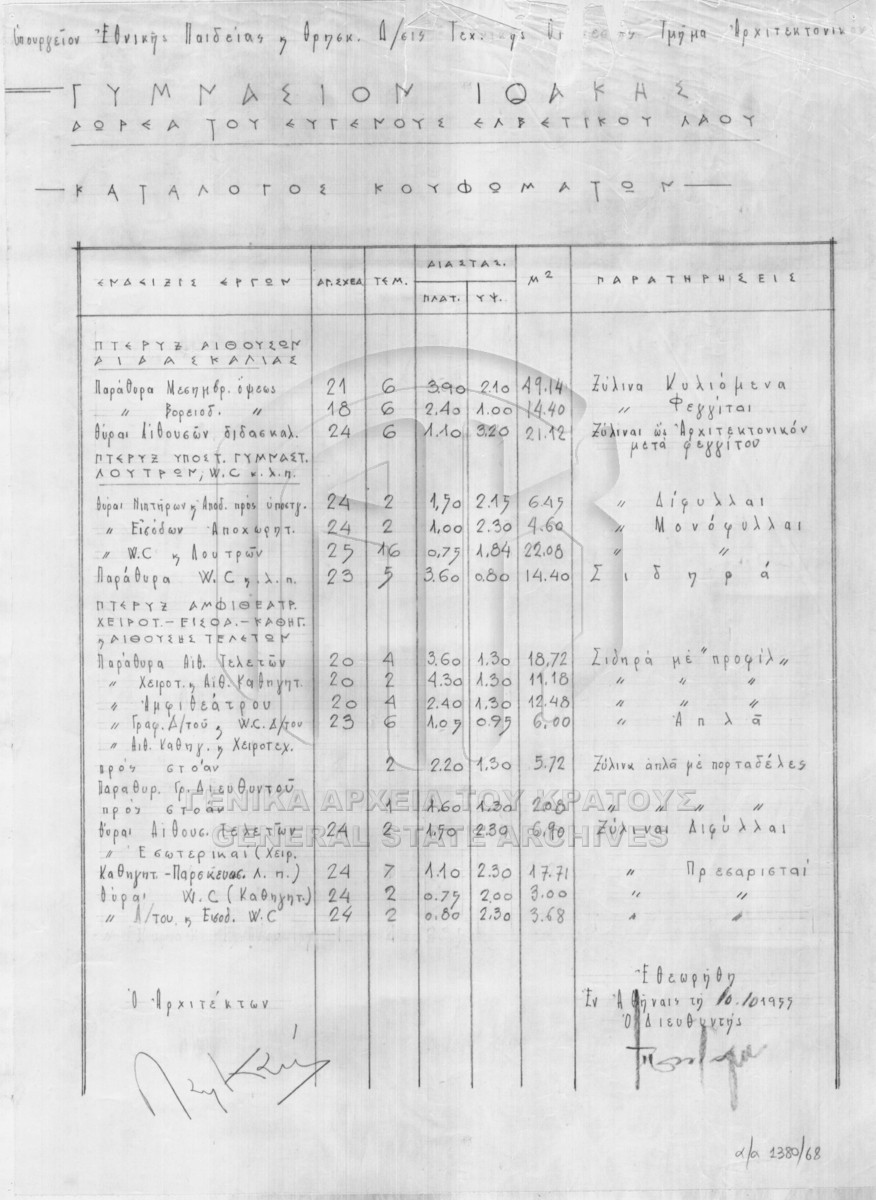 Ὑπουργεῖον Ἐθνικῆς Παιδείας ϗ Θρησκ. Δ/σις Τμῆμα Ἀρχιτεκτονικὸν
ΓΥΜΝΑΣΙΟΝ ΙΘΑΚΗΣ
ΔΩΡΕΑ ΤΟΥ ΕΥΓΕΝΟΥΣ ΕΛΒΕΤΙΚΟΥ ΛΑΟΥ
ΚΑΤΑΛΟΓΟΣ ΚΟΥΦΩΜΑΤΩΝ
ΕΝΔΕΙΞΙΣ ΕΡΓΩΝ ΑΡ.ΣΧΕΔ ΤΕΜ. ΔΙΑΣΤΑΣ. Μ² ΠΑΡΑΤΗΡΗΣΕΙΣ
ΠΛΑΤ. ΥΨ.
ΠΤΕΡΥΞ ΑΙΘΟΥΣΩΝ
ΔΙΔΑΣΚΑΛΙΑΣ
Παράθυρα Μεσημβρ. ὄψεως 21 6 3.90 2.10 49.14 Ξύλινα Κυλιόμενα
〃 βορειοδ. 〃 18 6 2.40 1.00 14.40 〃 Φεγγίται
Θύραι Αἰθουσῶν διδασκαλ. 24 6 1.10 3.20 21.12 Ξύλιναι ὡς Ἀρχιτεκτονικόν
μετά φεγγίτου
ΠΤΕΡΥΞ ΥΠΟΣΤ. ΓΥΜΝΑΣΤ.
ΛΟΥΤΡΩΝ, W.C κ.λ.π.
Θύραι Νιπτήρων ϗ Ἀποδ. πρὸς ὑπόστγ. 24 2 1,50 2.15 6.45 〃 Δίφυλλαι
〃 Εἰσόδων Ἀποχωρητ. 24 2 1,00 2.30 4.60 〃 Μονόφυλλαι
〃 W.C ϗ Λουτρῶν 25 16 0,75 1,84 22.08 〃 〃
Παράθυρα W.C ϗ.λ.π. 23 5 3.60 0.80 14.40 Σιδηρᾶ
ΠΤΕΡΥΞ ΑΜΦΙΘΕΑΤΡ.
ΧΕΙΡΟΤ.-ΕΙΣΟΔ.-ΚΑΘΗΓ.
ϗ ΑΙΘΟΥΣΗΣ ΤΕΛΕΤΩΝ
Παράθυρα Αἰθ. Τελετῶν 20 4 3.60 1.30 18,72 Σιδηρᾶ μὲ "προφίλ"
〃 Χειροτ. ϗ Αἰθ. Καθηγητ. 20 2 4.30 1.30 11.18 〃 〃 〃
〃 Ἀμφιθεάτρου 20 4 2.40 1.30 12.48 〃 〃 〃
〃 Γραφ. Δ/τοῦ ϗ W.C. Δ/του 23 6 1.05 0.95 6.00 〃 Ἁπλᾶ
〃 Αἰθ. Καθηγ. ϗ Χειροτεχ.
πρὸς στοάν 2 2.20 1.30 5.72 Ξύλινα ἁπλᾶ μὲ πορταδέλες
Παράθυρ. Γρ. Διευθυντοῦ
πρὸς στοάν 1 1.60 1.30 2.08 〃 〃 〃
Θύραι Αἰθουσ. Τελετῶν 24 2 1,50 2.30 6,90 Ξύλιναι Διφύλλαι
〃 Ἐσωτερικαὶ (Χειρ.
Καθηγητ.-Παρσκευασ. λ.π.) 24 7 1.10 2.30 17.71 〃 Πρεσαρισταί
Θύραι W.C (Καθηγητ.) 24 2 0.75 2.00 3.00 〃 〃
〃 Δ/του ϗ Εισοδ. W.C 24 2 0.80 2,30 3.68 〃 〃
ΓΕΝΙΚΑ ΑΡΧΕΙΑ ΤΟΥ ΚΡΑΤΟΥΣ
GENERAL STATE ARCHIVES
Ἐθεωρήθη
Ὁ Ἀρχιτέκτων Ἐν Ἀθήναις τῇ 10.10 1955
Ὁ Διευθυντής
α/α 1380/68